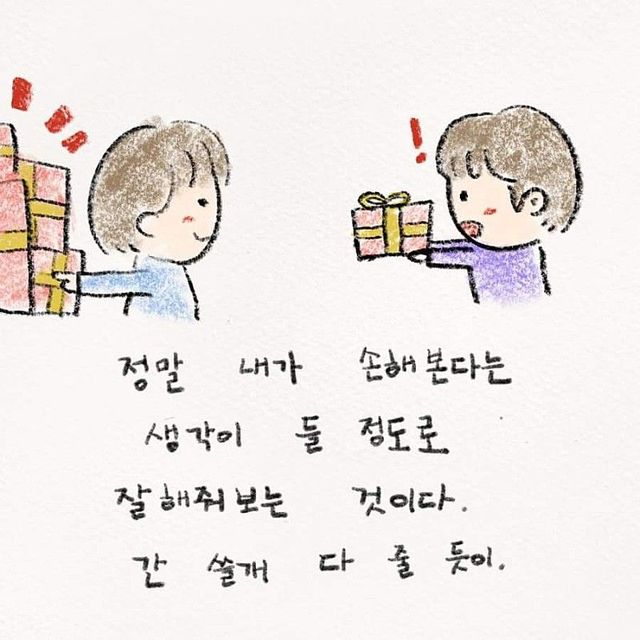 정말 내가 손해본다는
생각이 들 정도로
잘해줘보는 것이다.
간 쓸개 다 줄 듯이.